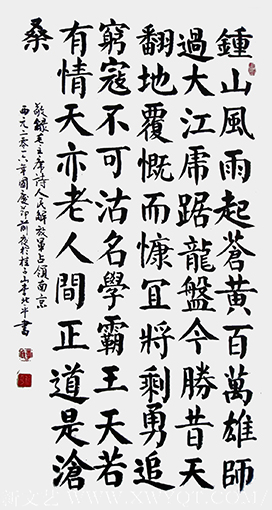 鍾山風雨起蒼黃百萬雄師
過大江虎踞龍盤今勝昔天
翻地覆慨而慷冝將剩勇追
窮寇不可沽名學霸王天若
有情天亦老人間正道是滄
桑
敬錄毛主席詩人民解放軍占領南京
西元二零一六年國慶節前夜於桂子山李北平書
新文艺